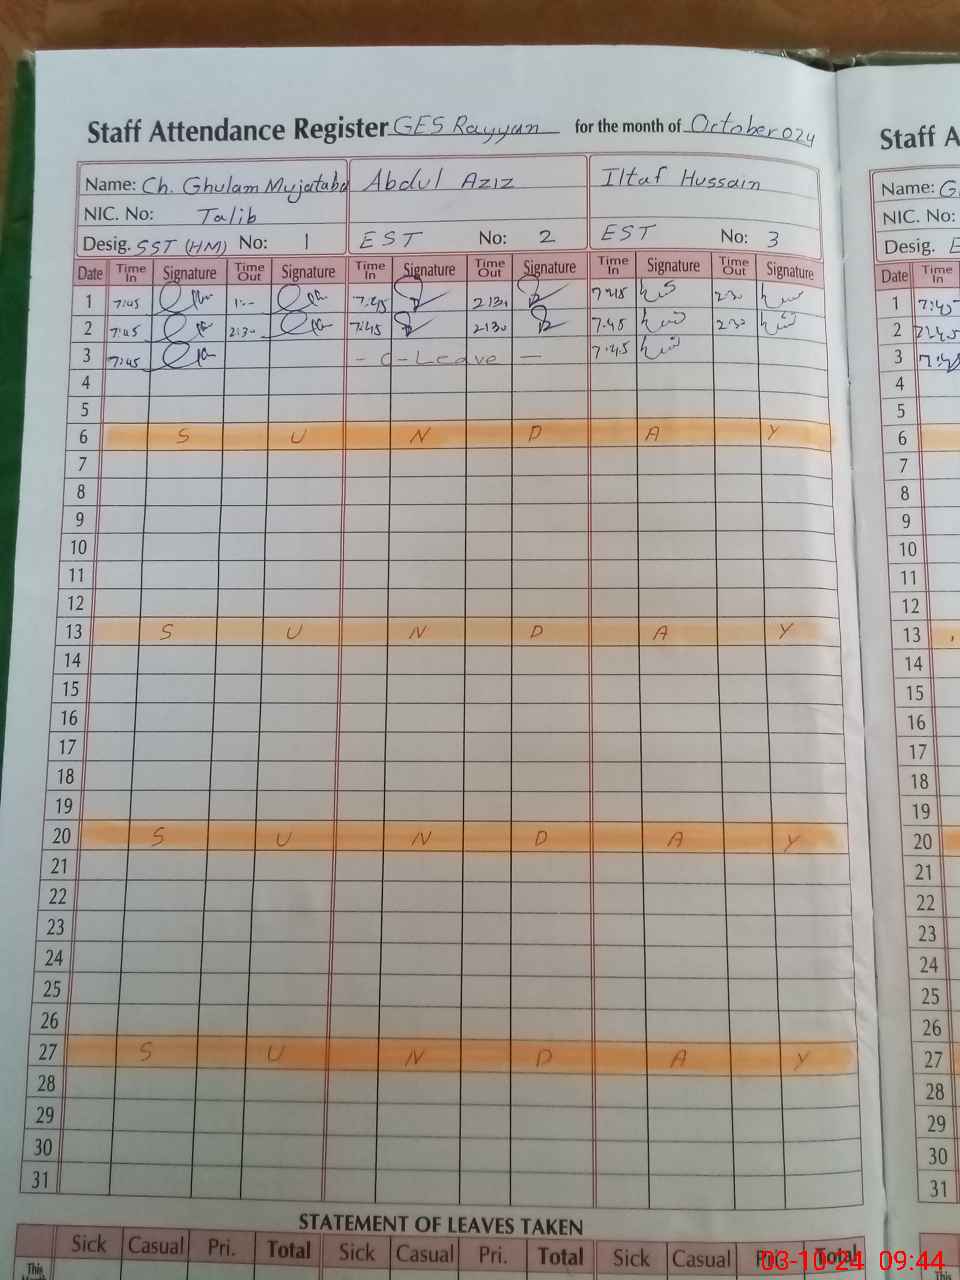 Staff Attendance Register GES Rayyan for the month of October 024
Staff A
Name: Ch. Ghulam Mujataba Abdul Aziz Iltaf Hussain
Name: G
NIC. No: Talib
NIC. No:
Desig. SST (HM) No: 1 EST No: 2 EST No: 3
Desig. E
Date Time In Signature Time Out Signature Time In Signature Time Out Signature Time In Signature Time Out Signature
Date Time In
1 7:45 1:- 7:45 2:30 7:45 2:30
1 7:45
2 7:45 2:30 7:45 2:30 7:45 2:30
2 7:45
3 7:45 - C-Leave - 7:45
3
4
4
5
5
6 S U N D A Y
6
7
7
8
8
9
9
10
10
11
11
12
12
13 S U N D A Y
13
14
14
15
15
16
16
17
17
18
18
19
19
20 S U N D A Y
20
21
21
22
22
23
23
24
24
25
25
26
26
27 S U N D A Y
27
28
28
29
29
30
30
31
31
STATEMENT OF LEAVES TAKEN
Sick Casual Pri. Total Sick Casual Pri. Total Sick Casual Pri. Total
This
This
03-10-24 09:44